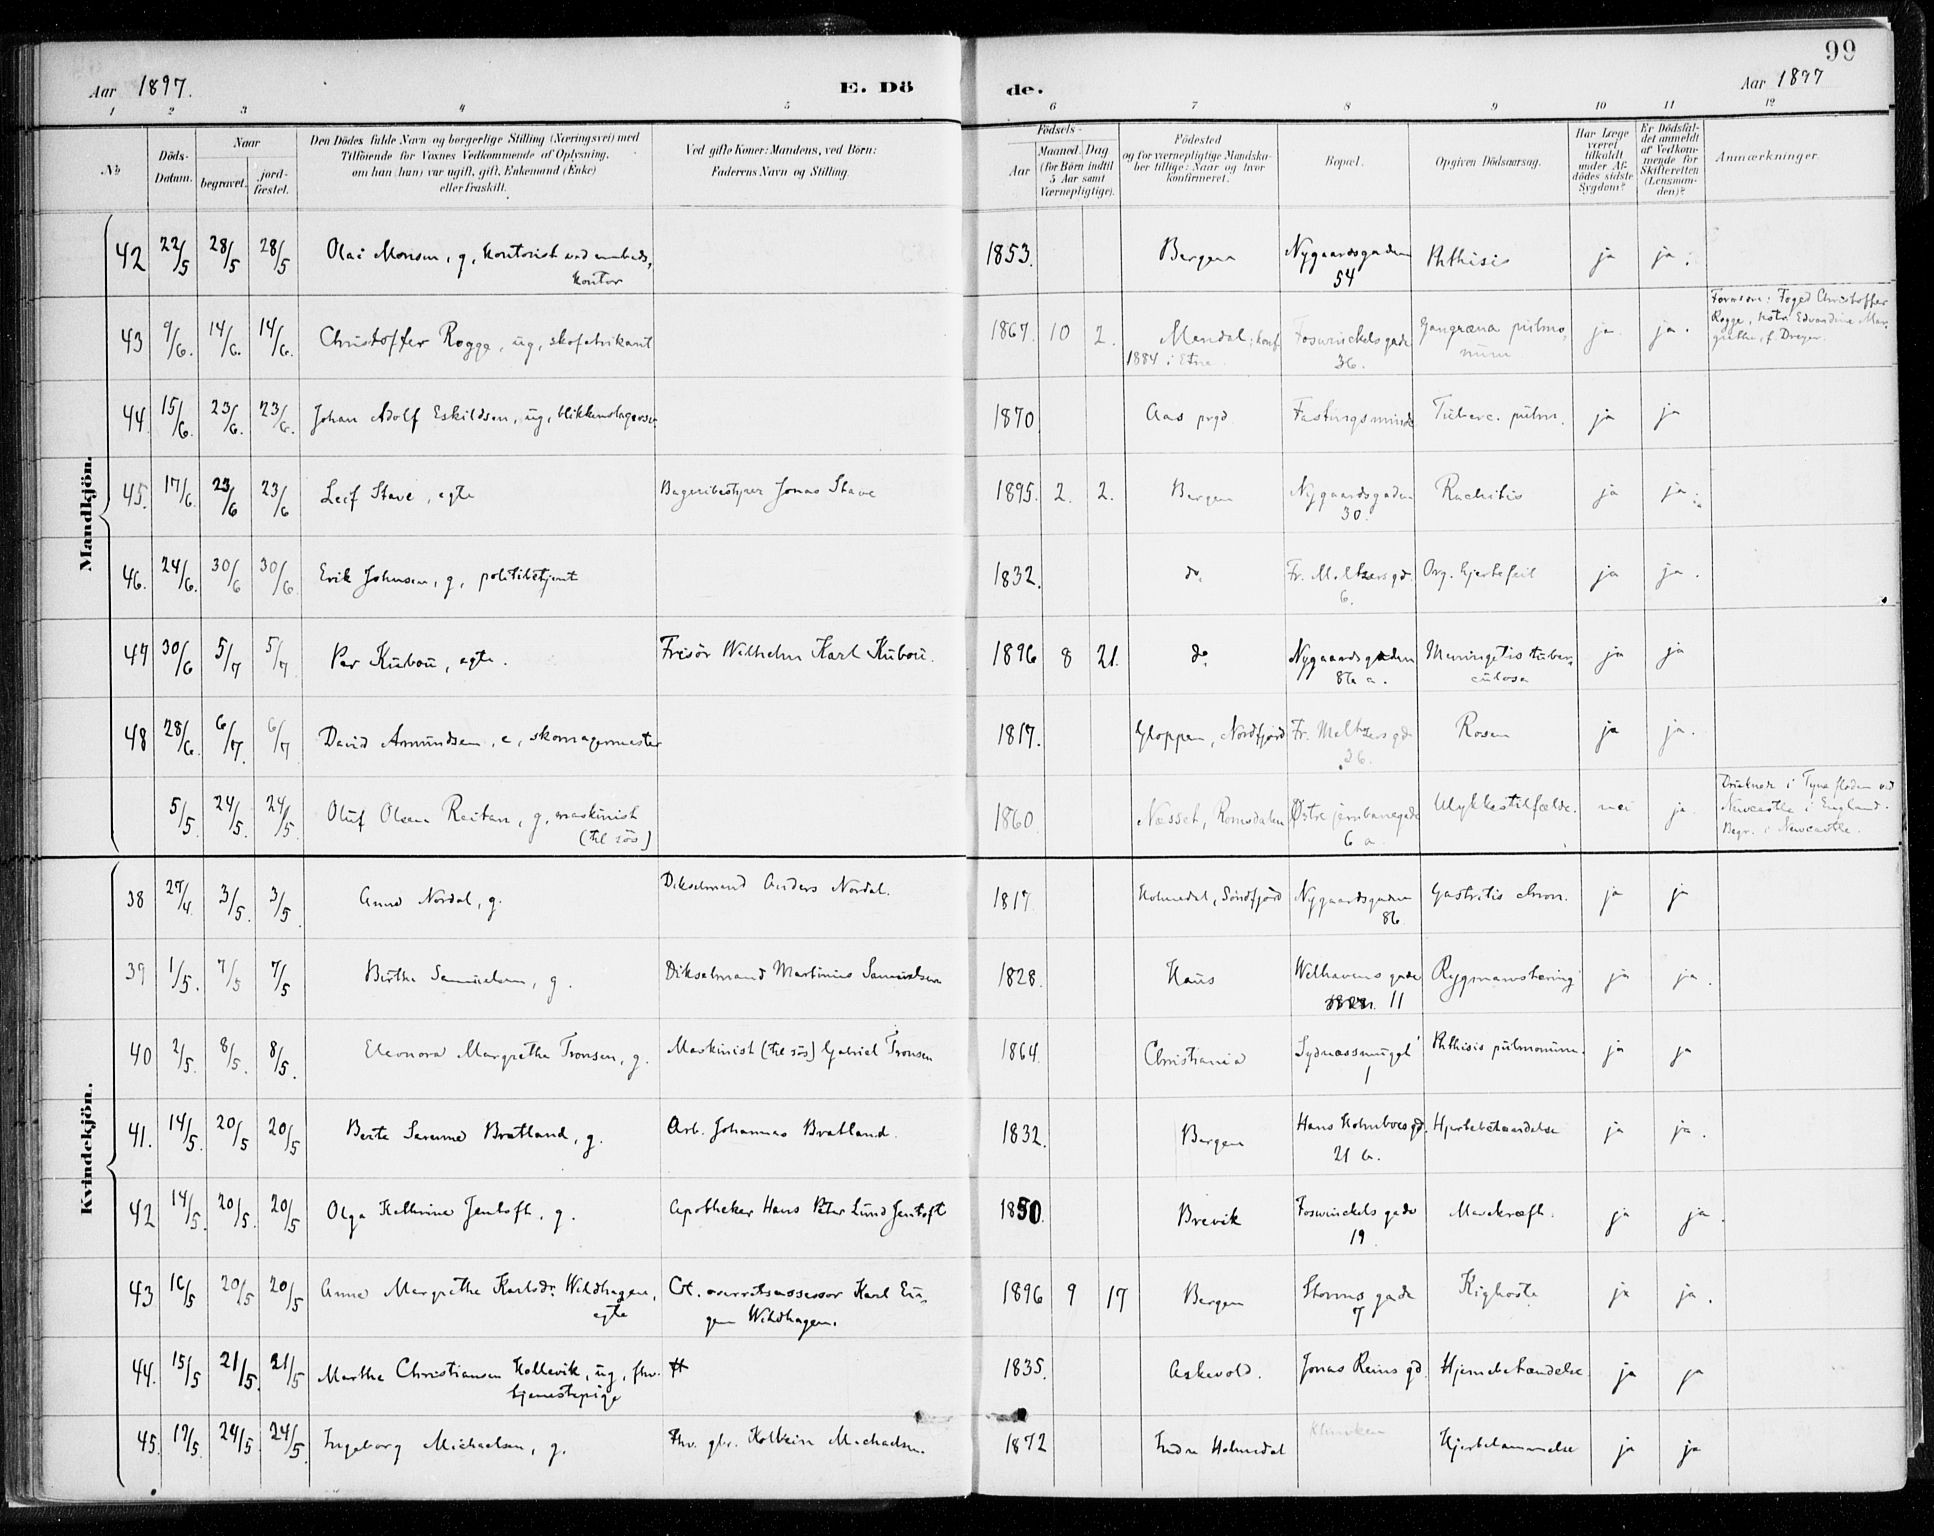 99
Aar 1897.
E. Dö
de.
Aar 1897
1 2 3 4 5 6 7 8 9 10 11 12
No
Döds-Datum.
Naar
begravet.
jord-fæstet.
Den Dödes fulde Navn og borgerlige Stilling (Næringsvei) med
Tilföiende for Voxnes Vedkommende af Oplysning,
om han (hun) var ugift, gift, Enkemand (Enke)
eller fraskilt.
Ved gifte Koner: Mandens, ved Börn:
Faderens Navn og Stilling.
Födsels-
Aar
Maaned. Dag
(for Börn indtil
5 Aar samt
Værnepligtige).
Födested
og for værnepligtige Mandska-
ber tillige: Naar og hvor
konfirmeret.
Bopæl.
Opgiven Dödsaarsag.
Har Læge
været
tilkaldt
under Af-
dödes sidste
Sygdom?
Er Dödsfal-
det anmeldt
af Vedkom-
mende for
Skifteretten
(Lensman-
den)?
Anmærkninger.
Mandkjön.
42 22/5 28/5 28/5 Olai Monsen, g, kontorist ved embeds- 1853. Bergen Nygaardsgaden Phthisis ja ja.
kontor 54
43 9/6. 14/6. 14/6. Christoffer Rogge, ug, skofabrikant 1867. 10 2. Mandal; konf. Foswinckelsgade Gangræna pulmo- ja ja. Forældre: Foged Christoffer
1884 i Etne 36. num Rogge, Edvardine Mar-
grethe, f. Dreyer.
44. 15/6. 23/6. 23/6. Johan Adolf Eskildsen, ug, blikkenslagersv. 1870 Aas prgd. Fastingsminde Tuberc. pulm. ja ja
45. 17/6. 23/6 23/6 Leif Stave, egte Bageribestyrer Jonas Stave 1895. 2. 2. Bergen Nygaardsgaden Rachitis ja ja.
30.
46. 24/6. 30/6 30/6 Erik Johnsen, g, politibetjent 1832. do. Fr. Meltzersgd. Org. hjertefeil ja ja.
6.
47 30/6 5/7 5/7 Per Kubou, egte. Frisör Wilhelm Karl Kubou. 1896 8 21. do. Nygaardsgaden Meningitis tuber- ja ja
86 a. culosa
48 28/6. 6/7. 6/7 David Amundsen, e, skomagermester 1817. Gloppen, Nordfjord Fr. Meltzersgd. Rosen ja ja.
26.
5/5 24/5. 24/5. Oluf Olsen Reitan, g, maskinist 1860. Næsset, Romsdalen Østre jernbanegade Ulykkestilfælde. nei ja. Druknede i Tyne floden ved
(til søs) 6 a Newcastle i England.
Begr. i Newcastle.
Kvindekjön.
38 27/4. 3/5. 3/5 Anna Nordal, g. Dikselmand Anders Nordal. 1817. Holmedal, Söndfjord Nygaardsgaden Gastritis chron. ja ja
86
39 1/5. 7/5 7/5 Berthe Samuelsen, g. Dikselmand Martinus Samuelsen 1828. Haus Welhavens gade Rygmarvstæring ja ja.
11
40 2/5. 8/5. 8/5. Eleonora Margrethe Tronsen, g. Maskinist (til søs) Gabriel Tronsen 1864. Christiania Sydnæssmuget Phthisis pulmonum. ja ja
1
41. 14/5. 20/5 20/5 Berte Serine Bratland, g. Arb. Johannes Bratland. 1832. Bergen Hans Holmboesgd. Hjertebetændelse ja ja.
21 b.
42 14/5. 20/5. 20/5 Olga Kathrine Jentoft, g. Apotheker Hans Peter Lund Jentoft 1850. Brevik Foswinckels gade Mavekræft. ja ja.
19.
43 16/5 20/5 20/5 Anna Margrethe Karlsdr. Wildhagen, Cst. overretsassessor Karl Eu- 1896 9 17 Bergen Storms gade Kighoste ja ja.
egte gen Wildhagen. 7
44. 15/5 21/5. 21/5 Marthe Christiansen Kollevik, ug, fhv. 1835. Askevold. Jonas Reins gd. Hjernebetændelse. ja ja
tjenestepige
45. 17/5. 24/5 24/5. Ingeborg Michaelsen, g. Fhv. gbr. Kolbein Michaelsen. 1872 Indre Holmedal Kliniken Hjertelammelse ja ja